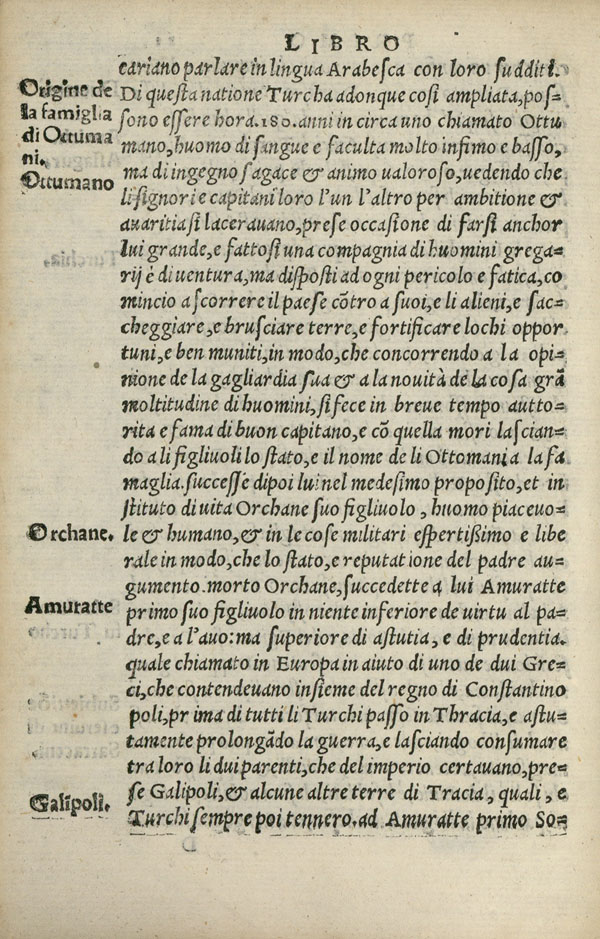 LIBRO
cariano parlare in lingua Arabesca con loro sudditi.
Origine de
la famiglia
di Ottuma
ni.
Ottumano
Di questa natione Turcha adonque così ampliata, pos-
sono essere hora .180. anni in circa uno chiamato Ottu
mano, huomo di sangue e faculta molto infimo e basso,
ma di ingegno sagace & animo valoroso, vedendo che
li signori e capitani loro l'un l'altro per ambitione &
avaritia si laceravano, prese occasione di farsi anchor
lui grande, e fattosi una compagnia di huomini grega-
rij è di ventura, ma disposti ad ogni pericolo e fatica, co
mincio a scorrere il paese cõtro a suoi, e li alieni, e sac-
cheggiare, e brusciare terre, e fortificare lochi oppor
tuni, e ben muniti, in modo, che concorrendo a la opi-
nione de la gagliardia sua & a la novità de la cosa grã
moltitudine di huomini, si fece in breve tempo autto-
rita e fama di buon capitano, e cõ quella mori lascian-
do a li figlivoli lo stato, e il nome de li Ottomani a la fa
maglia. successe dipoi lui nel medesimo proposito, et in
stituto di vita Orchane suo figlivolo, huomo piacevo-
Orchane.
le & humano, & in le cose militari espertissimo e libe
rale in modo, che lo stato, e reputatione del padre au-
gumento. morto Orchane, succedette a lui Amuratte
Amuratte
primo suo figlivolo in niente inferiore de virtu al pa-
dre, e a l'avo: ma superiore di astutia, e di prudentia.
quale chiamato in Europa in aiuto di uno de dui Gre-
ci, che contendevano insieme del regno di Constantino
poli, prima di tutti li Turchi passo in Thracia, e astu-
tamente prolongãdo la guerra, e lasciando consumare
tra loro li dui parenti, che del imperio certavano, pre-
Galipoli.
se Galipoli, & alcune altre terre di Tracia, quali, e
Turchi sempre poi tennero. ad Amuratte primo So-